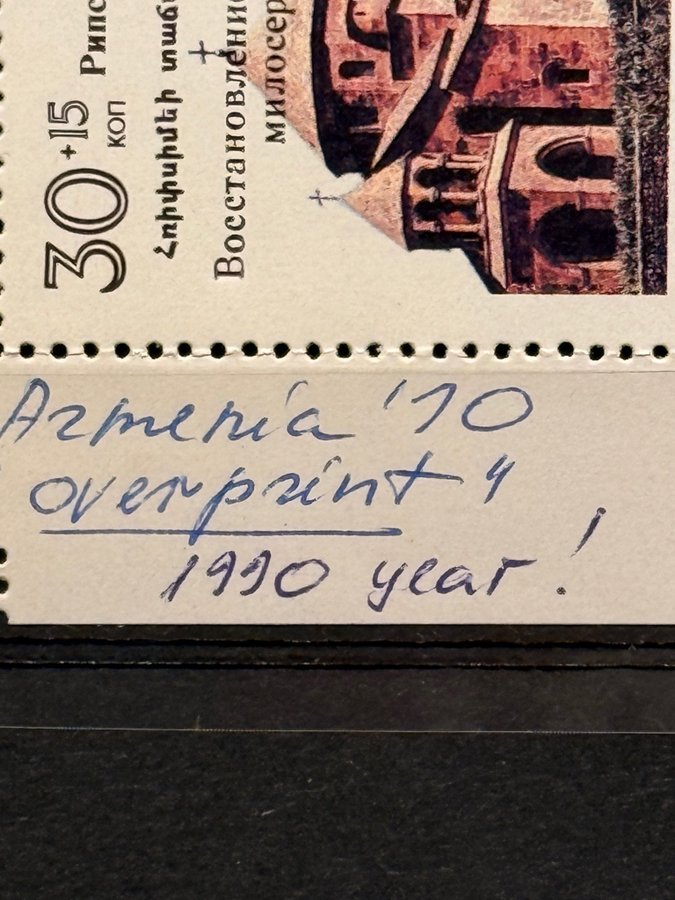 30 +15
коп
Հռիփսիմեի
Восстановление
Armenia '10
overprint "
1990 year!